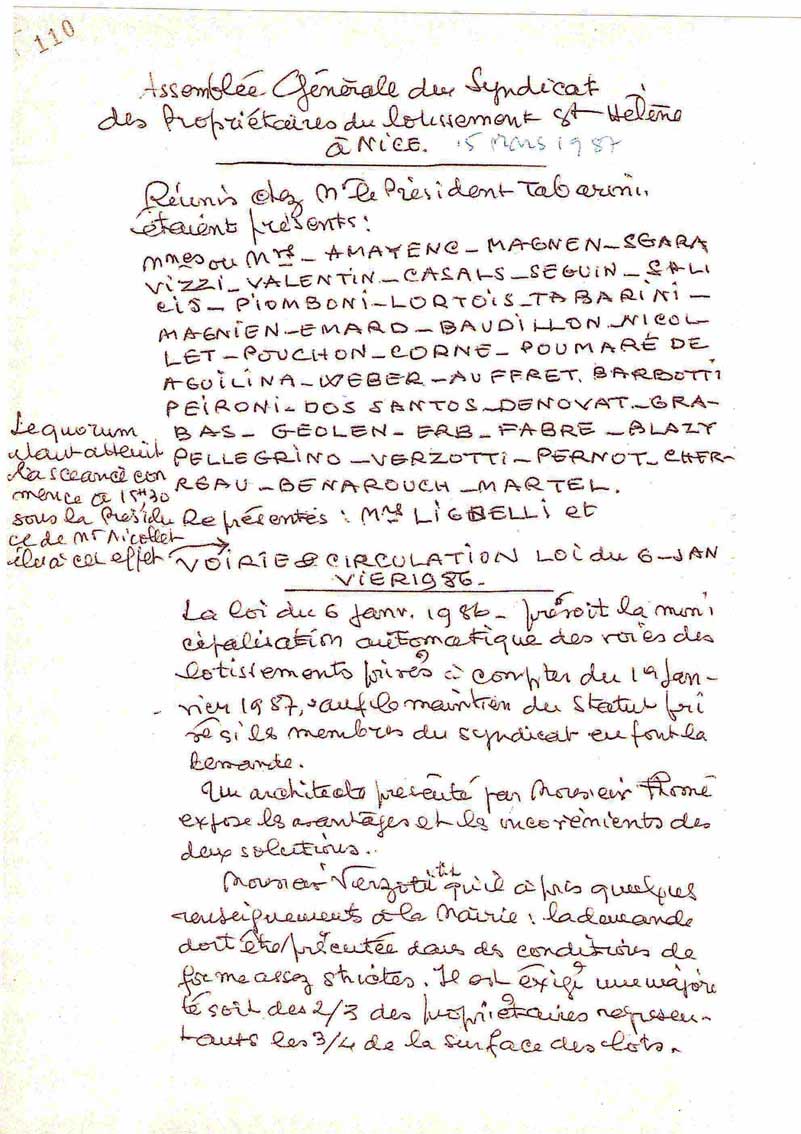 110
Assemblée Générale du Syndicat
des Propriétaires du lotissement St Hélène
à NICE. 15 Mars 1987
Réunis chez Mr le Président Tabarini,
étaient présents :
Mmes ou Mrs - AMAYENC - MAGNEN - SGARA
VIZZI - VALENTIN - CASALS - SEGUIN - SALI
CIS - PIOMBONI - LORTOIS - TABARINI -
MAGNIEN - EMARD - BAUDILLON - NICOL-
LET - POUCHON - CORNE - POUMARÉ DE
AGUILINA - WEBER - AUFFRET. BARBOTTI
PEIRONI - DOS SANTOS - DENOVAT - GRA-
BAS - GEOLEN - ERB - FABRE - BLAZY
PELLEGRINO - VERZOTTI - PERNOT - CHER-
REAU - BENAROUCH - MARTEL.
Représentés : Mrs LIGBELLI et
Le quorum
étant atteint
la scéance com
mence à 15H30
sous la Présiden
ce de Mr Nicollet
élu à cet effet
VOIRIE & CIRCULATION LOI du 6 - JAN
VIER 1986 -
La loi du 6 janv. 1986 - prévoit la muni
cipalisation automatique des voies des
lotissements privés à compter du 1er Jan-
vier 1987, sauf le maintien du Statut pri
vé si les membres du syndicat en font la
demande.
Un architecte présenté par Monsieur Thomé
expose les avantages et les inconvénients des
deux solutions.
Monsieur Verzotti dit qu'il a pris quelques
renseignements à la Mairie : la demande
doit être présentée dans des conditions de
forme assez strictes. Il est exigé une majori
té soit des 2/3 des propriétaires représen-
tants les 3/4 de la surface des lots.